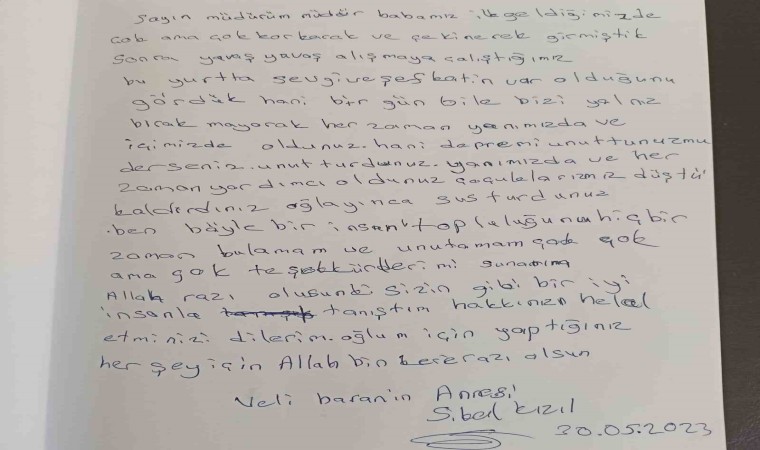 Sayın müdürüm müdür babamız ilk geldiğimizde
çok ama çok korkarak ve çekinerek girmiştik
Sonra yavaş yavaş alışmaya çalıştığımız
bu yurtta sevgi ve şefkatin var olduğunu
gördük hani bir gün bile bizi yalnız
bırak mayarak her zaman yanımızda ve
içimizde oldunuz. hani depremi unuttunuzmu
derseniz. unut turdunuz. yanımızda ve her
zaman yardımcı oldunuz çocuklarımız düştü
kaldırdınız ağlayınca susturdunuz
.ben böyle bir insan topluluğunu hiç bir
zaman bulamam ve unutamam çok çok
ama çok teşekkürlerimi sunarım
Allah razı olusunki sizin gibi bir iyi
insanla tanıştım hakkınızı helal
etminizi dilerim. oğlum için yaptığınız
her şey için Allah bin kere razı olsun
Veli baran'ın Annesi
Sibel Kızıl
30.05.2023